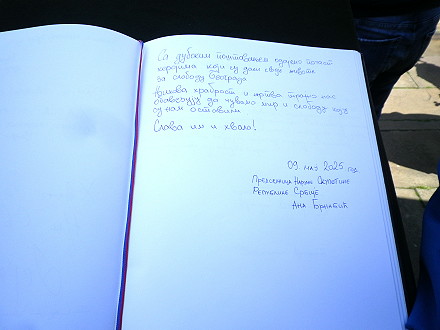 Са дубоким поштовањем одајемо почаст
херојима који су дали своје животе
за слободу Београда.
Њихова храброст и жртва трајно нас
обавезују да чувамо мир и слободу коју
су нам оставили.
Слава им и хвала!
09. мај 2025 год.
Председница Народне Скупштине
Републике Србије
Ана Брнабић